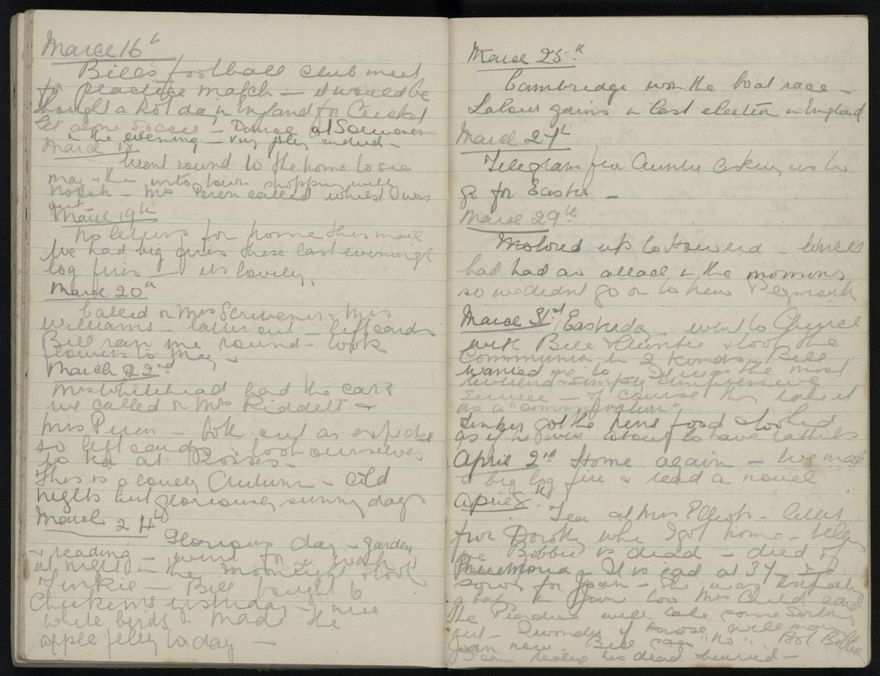 March 16th
Bill's football club meet
for practise match — it would be
thought a hot day in England for Cricket
let alone Soccer — Dance at Scriveners
in the evening — very jolly indeed —
March 18
Went round to the home to see
May — then into town shopping with
Norah — Mrs Peren called whilst I was
out —
March 19th
No letters for home this mail
We had big fires these last evenings
log fires — its lovely,
March 20th
Called on Mrs Scrivener, Mrs
Williams — latter out — left cards
Bill ran me round — took
flowers to May —
March 22nd
Mrs Whitehead had the car &
we called on Mrs Riddett &
Mrs Peren — both out as expected
so left cards & took ourselves
to tea at Rosses —
This is a lovely Autumn — cold
nights but gloriously sunny days
March 24th
Glorious day — garden
& reading — went for a walk
at night in the moonlight & took
Tinkie — Bill bought 6
chickens yesterday — nice
white birds — Made the
apple jelly today —
March 25th
Cambridge won the boat race —
Labour gains in last election in England
March 27th
Telegram from Auntie asking us to
go for Easter —
March 29th
Motored up to Howera — Uncle
had had an attack in the morning
so we didnt go on to New Plymouth
March 31st Easter day — went to Church
with Bill & Auntie & took the
Communion in 2 kinds — Bill
wanted me to — It was the most
reverend simple & impressive
Service — of course they take it
as a "commemoration"
Tinker got the hens food & looked
as if he were about to have kittens
April 2nd Home again — We made
a big log fire & read a novel
April 8th
Tea at Mrs Elliots — letter
from Dorothy when I got home — telling
me Bobbie is dead — died of
Pneumonia — It is sad at 37 — I
sorry for Joan — She was
a baby in June too Mrs Child said
The will take some sorting
out — I wonder if will marry
Joan now. Bill says "No". But Bobbie
dead & buried —